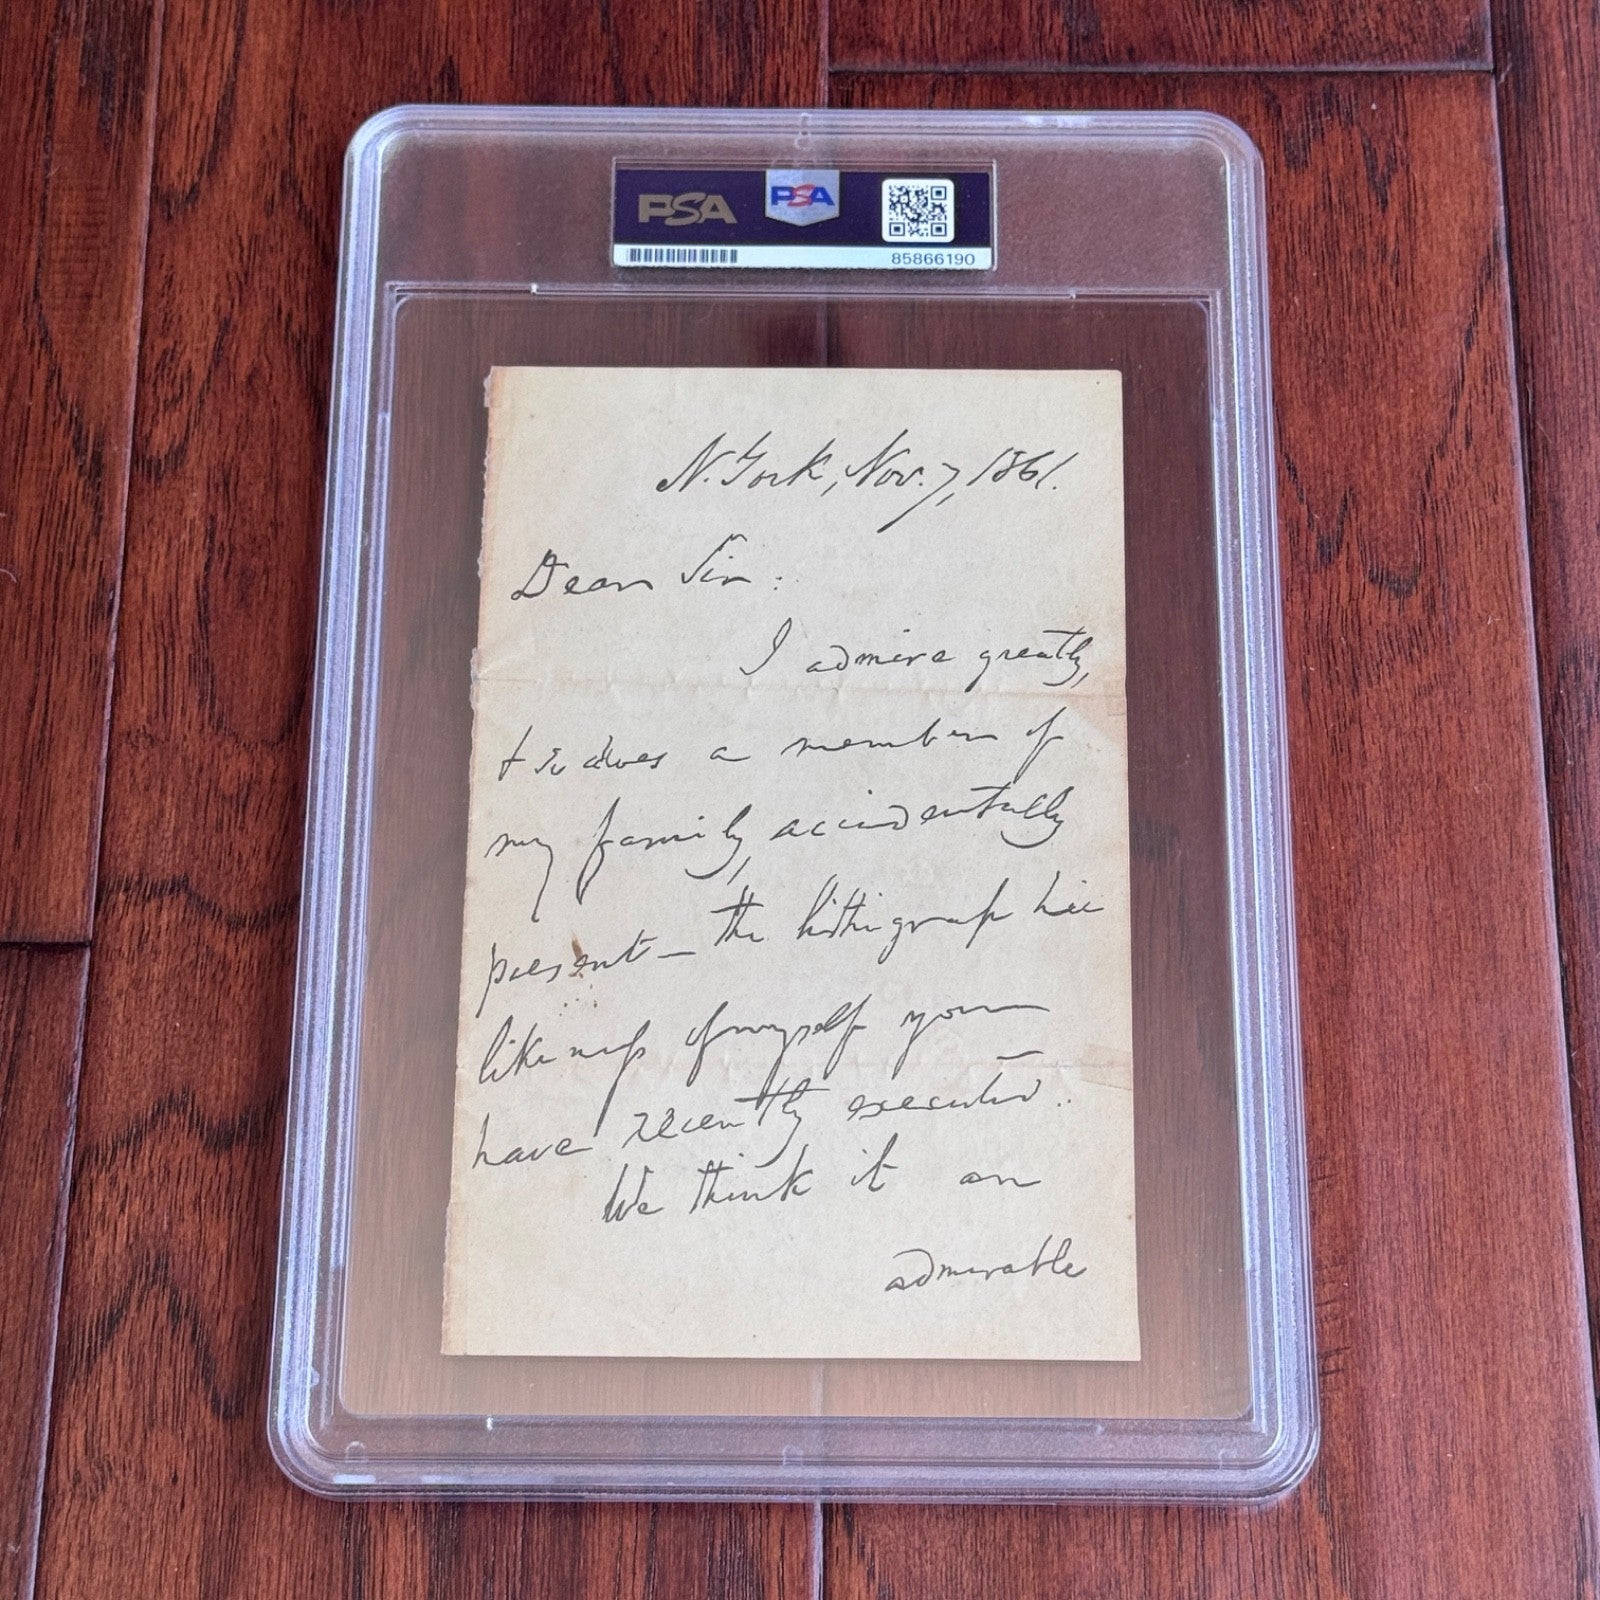 PSA
PSA
85866190
N. York, Nov. 7, 1861.
Dear Sir:
I admire greatly,
& so does a member of
my family, accidentally
present — the lithograph
likeness of myself you
have recently executed.
We think it an
admirable